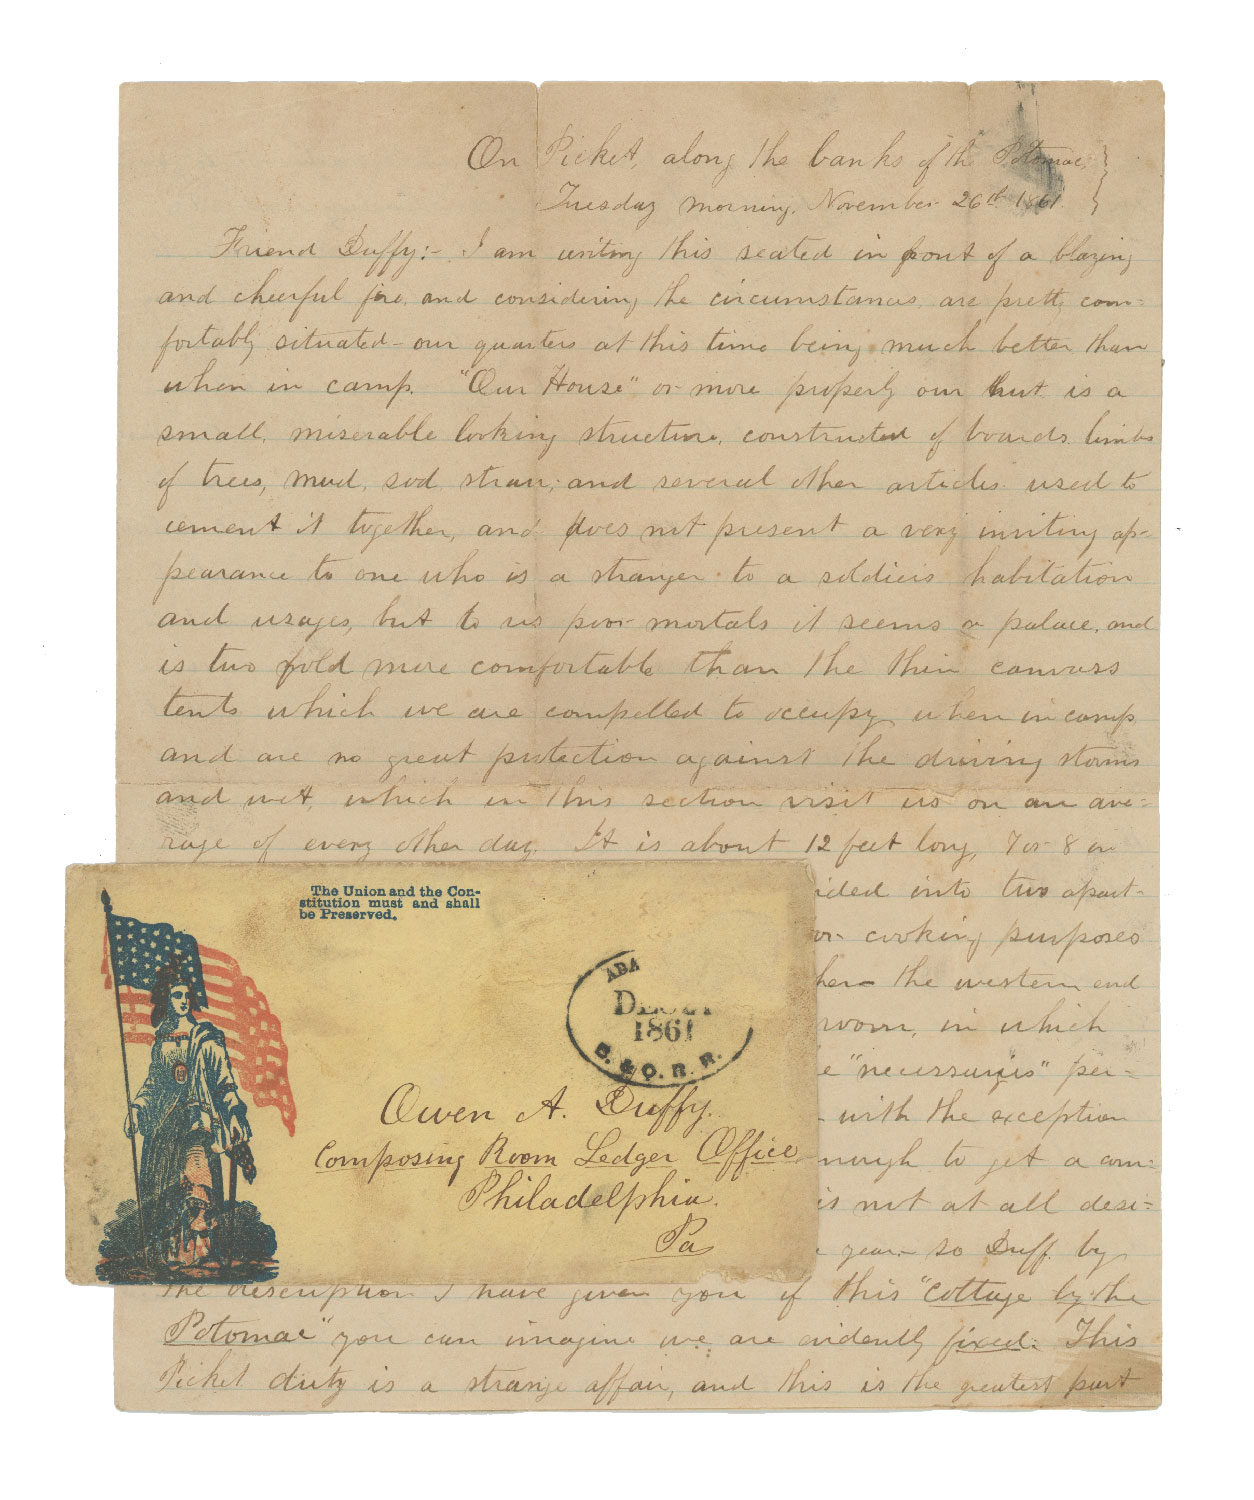 On Picket, along the banks of the Potomac,
Tuesday morning, November 26th 1861
Friend Duffy:- I am writing this seated in front of a blazing
and cheerful fire, and considering the circumstances, are pretty com=
fortably situated - our quarters at this time being much better than
when in camp. "Our House" or more properly our hut is a
small, miserable looking structure, constructed of boards, limbs
of trees, mud, sod, straw, and several other articles used to
cement it together, and does not present a very inviting ap-
pearance to one who is a stranger to a soldiers habitation
and usages, but to us poor mortals it seems a palace, and
is two fold more comfortable than the thin canvass
tents which we are compelled to occupy when in camp
and are no great protection against the driving storms
and wet, which in this section visit us on an ave=
rage of every other day. It is about 12 feet long, 7 or 8 in
ided into two apart-
or cooking purposes
her - the western end
room, in which
"necessaries" per-
with the exception
nough to get a com=
is not at all desi=
year - so Duff. by
the description I have given you of this "cottage by the
Potomac" you can imagine we are evidently fixed. This
Picket duty is a strange affair, and this is the greatest part
The Union and the Con-
stitution must and shall
be Preserved.
ADA
DEC 21
1861
B. & O. R. R.
Owen A. Duffy.
Composing Room Ledger Office
Philadelphia.
Pa